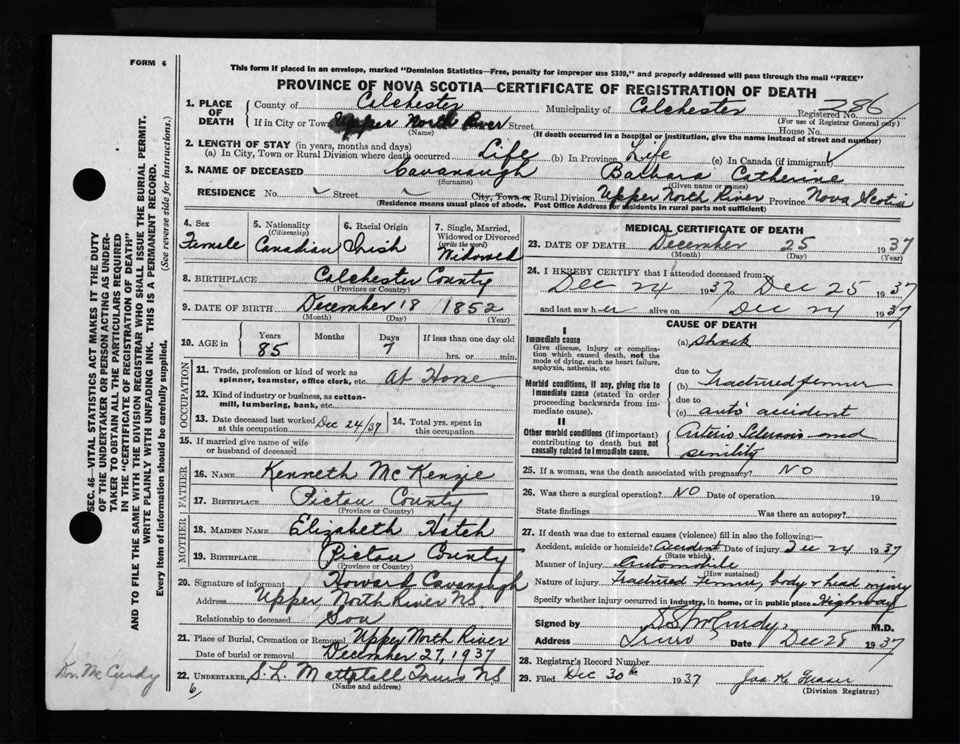 FORM 6
This form if placed in an envelope, marked "Dominion Statistics—Free, penalty for improper use $300," and properly addressed will pass through the mail "FREE"
PROVINCE OF NOVA SCOTIA—CERTIFICATE OF REGISTRATION OF DEATH
1. PLACE OF DEATH
County of Colchester Municipality of Colchester Registered No. 286
(For use of Registrar General only)
If in City or Town Upper North River Street House No.
(Name) (If death occurred in a hospital or institution, give the name instead of street and number)
2. LENGTH OF STAY (in years, months and days)
(a) In City, Town or Rural Division where death occurred Life (b) In Province Life (c) In Canada (if immigrant)
3. NAME OF DECEASED Cavanaugh Barbara Catherine
(Surname) (Given name or names)
RESIDENCE No. Street City, Town or Rural Division Upper North River Province Nova Scotia
(Residence means usual place of abode. Post Office Address for residents in rural parts not sufficient)
4. Sex Female
5. Nationality (Citizenship) Canadian
6. Racial Origin Irish
7. Single, Married, Widowed or Divorced (write the word) Widowed
8. BIRTHPLACE Colchester County
(Province or Country)
9. DATE OF BIRTH December 18 1852
(Month) (Day) (Year)
10. AGE in Years 85 Months Days 7 If less than one day old hrs. or min.
OCCUPATION
11. Trade, profession or kind of work as spinner, teamster, office clerk, etc. At Home
12. Kind of industry or business, as cotton-mill, lumbering, bank, etc.
13. Date deceased last worked at this occupation Dec 24/37
14. Total yrs. spent in this occupation
15. If married give name of wife or husband of deceased
FATHER
16. NAME Kenneth McKenzie
17. BIRTHPLACE Pictou County
(Province or Country)
MOTHER
18. MAIDEN NAME Elizabeth Hatch
19. BIRTHPLACE Pictou County
(Province or Country)
20. Signature of informant Howard Cavanaugh
Address Upper North River N.S.
Relationship to deceased Son
21. Place of Burial, Cremation or Removal Upper North River
Date of burial or removal December 27, 1937
22. UNDERTAKER S. L. Mattatall Truro N.S.
(Name and address)
6
MEDICAL CERTIFICATE OF DEATH
23. DATE OF DEATH December 25 1937
(Month) (Day) (Year)
24. I HEREBY CERTIFY that I attended deceased from:
Dec 24 1937 to Dec 25 1937
and last saw her alive on Dec 24 1937
CAUSE OF DEATH
I
Immediate cause
Give disease, injury or complication which caused death, not the mode of dying, such as heart failure, asphyxia, asthenia, etc
(a) Shock
due to
Morbid conditions, if any, giving rise to immediate cause (stated in order proceeding backwards from immediate cause).
(b) Fractured femur
due to
(c) auto accident
II
Other morbid conditions (if important) contributing to death but not causally related to Immediate cause.
Arterio Sclerosis and
senility
25. If a woman, was the death associated with pregnancy? NO
26. Was there a surgical operation? NO Date of operation 19
State findings Was there an autopsy?
27. If death was due to external causes (violence) fill in also the following:
Accident, suicide or homicide? accident Date of injury Dec 24 1937
(State which)
Manner of injury Automobile
(How sustained)
Nature of injury Fractured Femur, body & head injury
Specify whether injury occurred in industry, in home, or in public place Highway
Signed by S.S. McCurdy, M.D.
Address Truro Date Dec 28 1937
28. Registrar's Record Number
29. Filed Dec 30th 1937 Jas K. Fraser
(Division Registrar)
SEC. 46—VITAL STATISTICS ACT MAKES IT THE DUTY
OF THE UNDERTAKER OR PERSON ACTING AS UNDER-
TAKER TO OBTAIN ALL THE PARTICULARS REQUIRED
IN THE "CERTIFICATE OF REGISTRATION OF DEATH"
AND TO FILE THE SAME WITH THE DIVISION REGISTRAR WHO SHALL ISSUE THE BURIAL PERMIT.
WRITE PLAINLY WITH UNFADING INK. THIS IS A PERMANENT RECORD.
Every item of information should be carefully supplied. (See reverse side for instructions.)
Dr. McCurdy